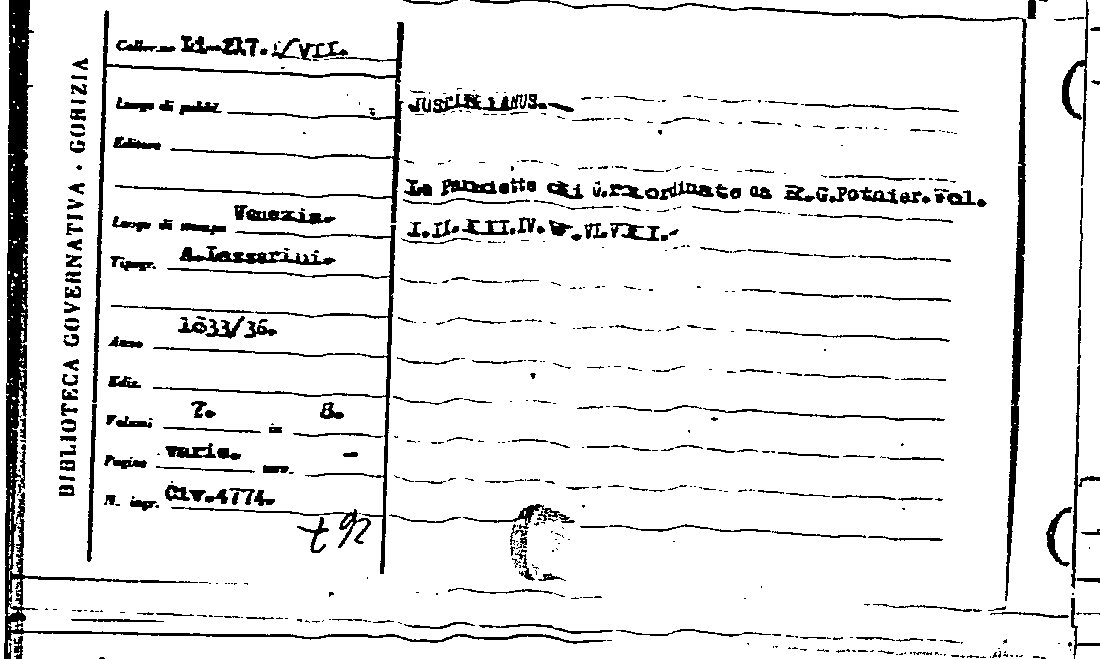 BIBLIOTECA GOVERNATIVA . GORIZIA
Colloc.ne
Luogo di pubbl.
JUSTINIANUS.-
Editore
Le Pandette di riordinate da R.G.Potnier.Vol.
Luogo di stampa Venezia.
I.II.III.IV.V.VI.VII.-
Tipogr. A.Lazzarini.
Anno 1833/36.
Ediz.
Volumi 7. in 8.
Pagine varie. -
N. ingr. Civ.4774.
t 92